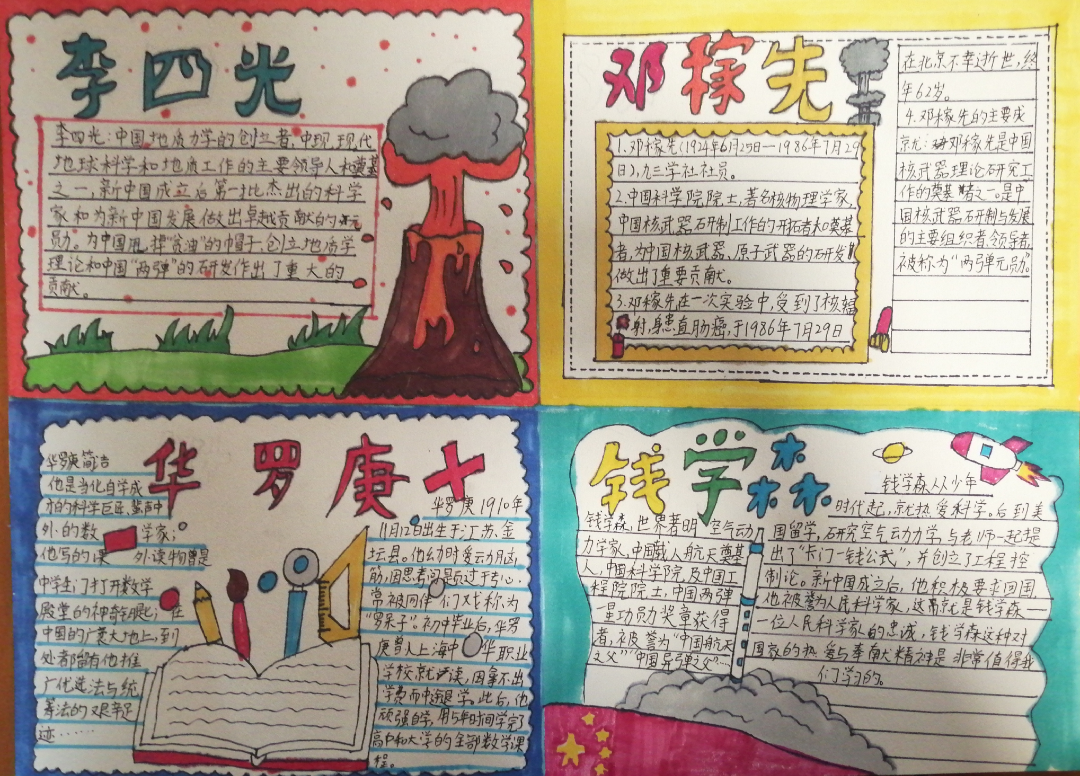 李四光
李四光:中国地质力学的创立者,中现,现代
地球科学和地质工作的主要领导人和奠基
之一,新中国成立后第一批杰出的科学
家和为新中国发展做出卓越贡献的元
勋。为中国甩掉"贫油"的帽子,创立地质学
理论和中国"两弹"的研发作出了重大的
贡献。
邓稼先
1.邓稼先(1924年6月25日—1986年7月29
日),九三学社社员。
2.中国科学院院士,著名核物理学家,
中国核武器研制工作的开拓者和奠基
者,为中国核武器、原子武器的研发
做出了重要贡献。
3.邓稼先在一次实验中,受到了核辐
射,身患直肠癌,于1986年7月29日
在北京不幸逝世,终
年62岁。
4.邓稼先的主要成
就:邓稼先是中国
核武器理论研究工
作的奠基者之一。是中
国核武器研制与发展
的主要组织者,领导者,
被称为"两弹元勋"。
华罗庚
华罗庚简洁
他是当代自学成
才的科学巨匠,蜚声中
外的数学家;
他写的课外读物曾是
中学生们打开数学
殿堂的神奇眼匕;在
中国的广袤大地上,到
处都留有他推
广优选法与统
筹法的艰辛足
迹……
华罗庚1910年
11月12日出生于江苏金
坛县。他幼时爱动脑
筋,因思考问题过于专心
常被同伴们戏称为
"罗呆子"。初中毕业后,华罗
庚曾入上海中华职业
学校就读,因拿不出
学费而中途退学。此后,他
顽强自学,用5年时间学完了
高中和大学的全部数学课
程。
钱学森
钱学森,世界著明空气动
力学家,中国载人航天奠基
人,中国科学院及中国工
程院院士,中国两弹
一星功勋奖章获得
者,被誉为"中国航天
之父""中国导弹之父"……
钱学森从少年
时代起,就热爱科学。后到美
国留学,研究空气动力学,与老师一起提
出了"卡门—钱公式",并创立了工程控
制论。新中国成之后,他积极要求回国,
他被誉为人民科学家,这就是钱学森—
一位人民科学家的忠诚,钱学森这种对
国家的热爱与奉献精神是非常值得我
们学习的。